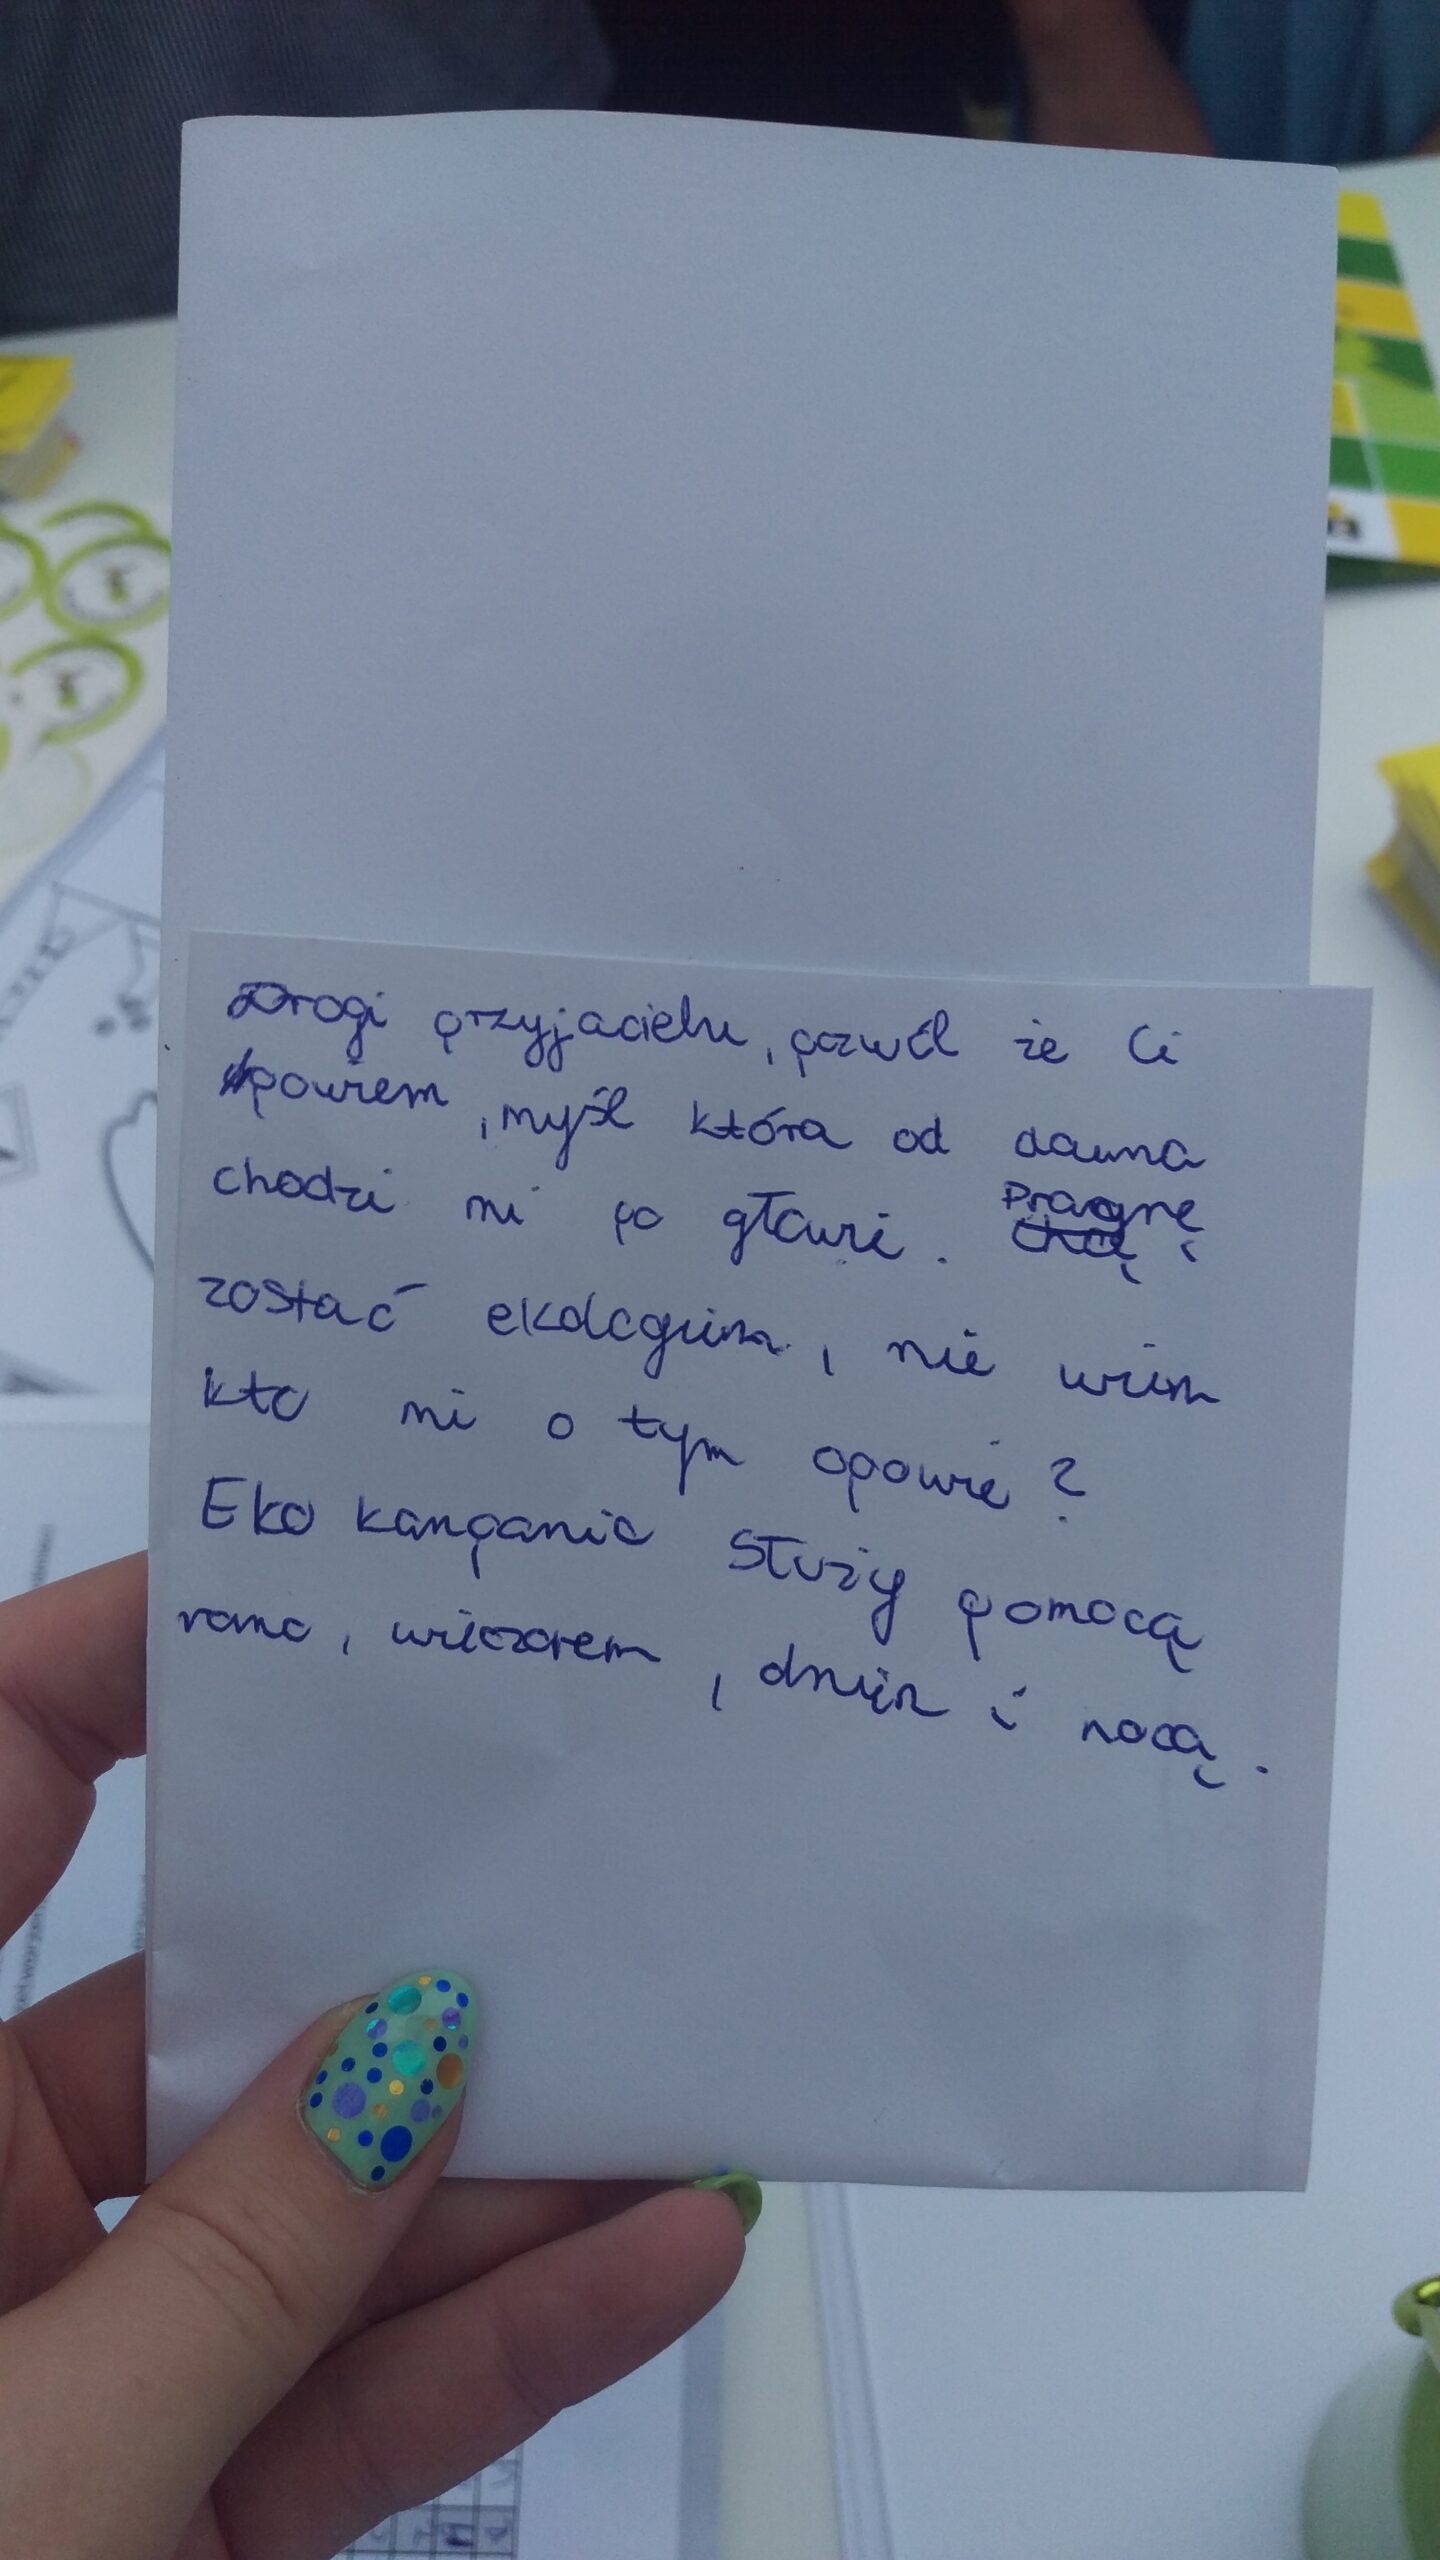 Drogi przyjacielu, pozwól że Ci
powiem, myśl która od dawna
chodzi mi po głowie. Pragnę
zostać ekologiem, nie wiem
kto mi o tym opowie?
Eko kampania służy pomocą
rano, wieczorem, dniem i nocą.